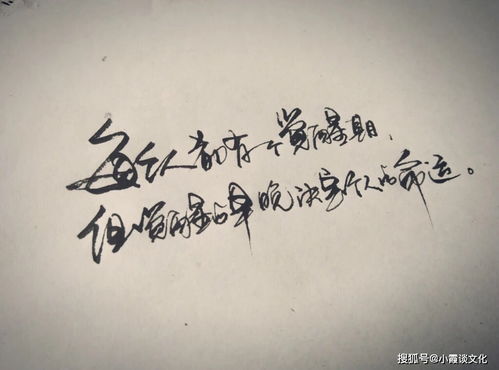 每个人都有一个觉醒期，
但觉醒的早晚决定个人的命运。
搜狐号@小霞谈文化